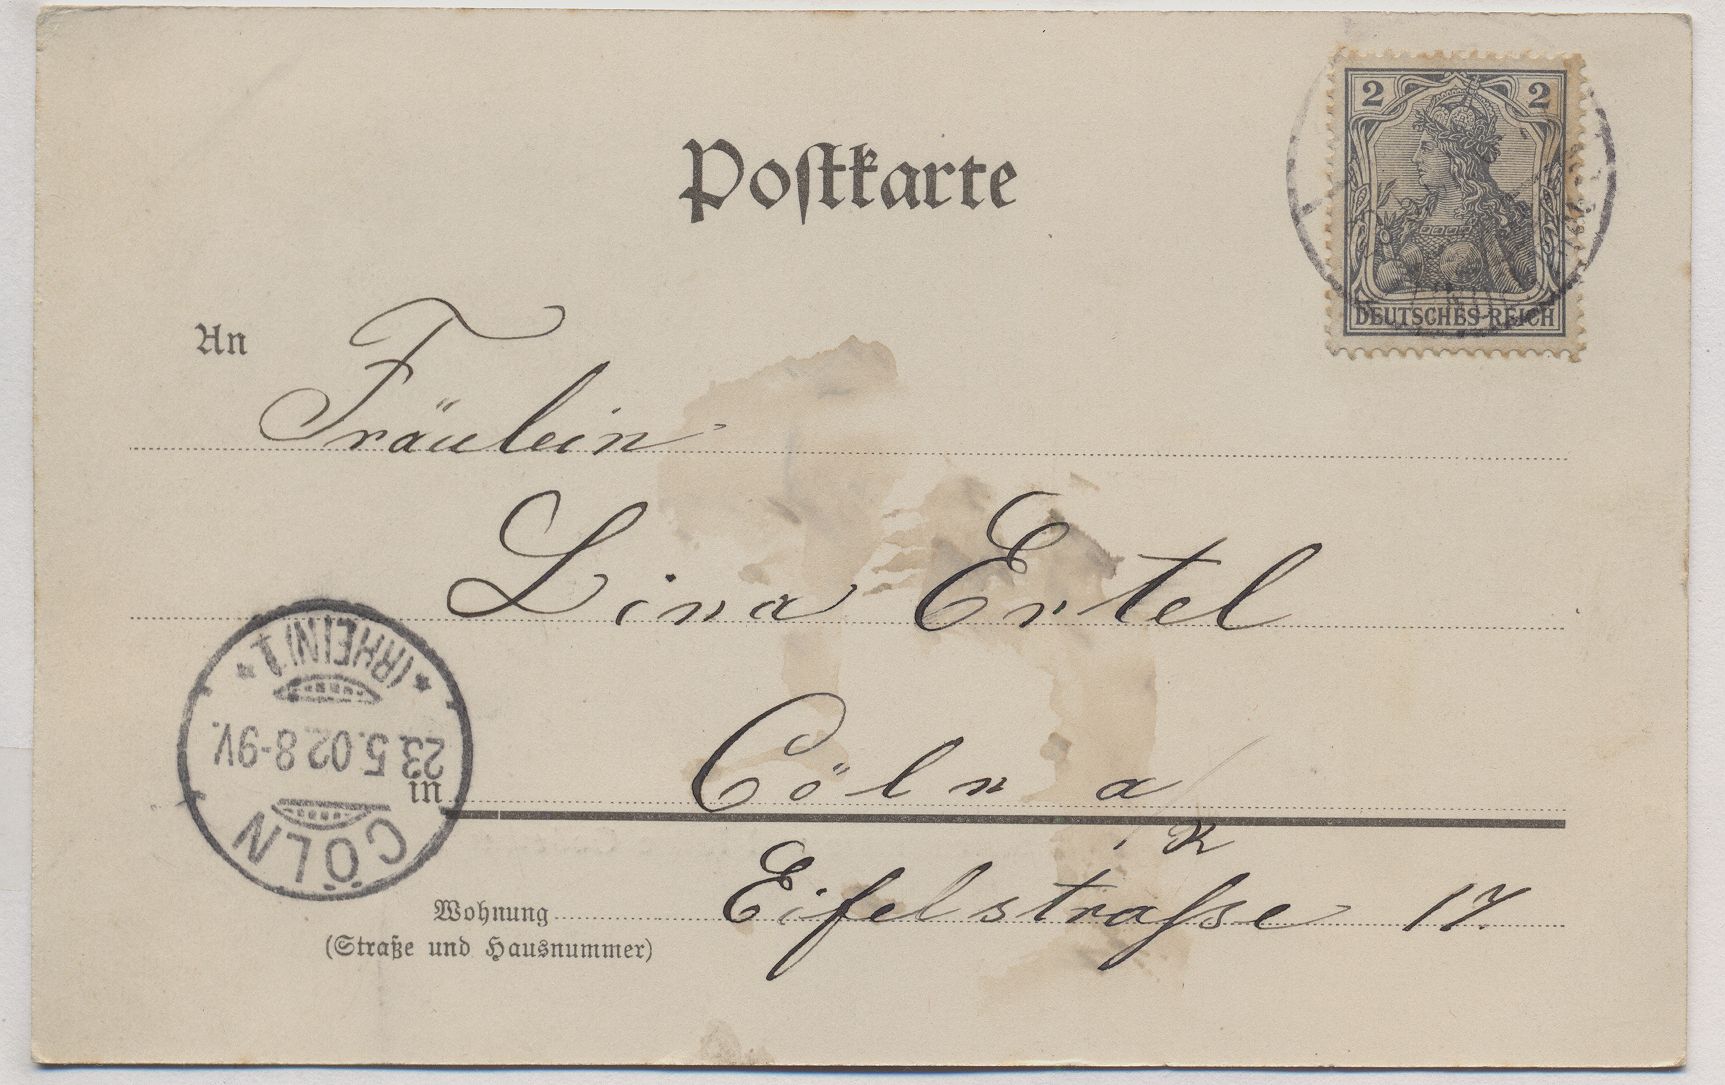 Postkarte
2 2
DEUTSCHES REICH
An
Fräulein
Lina Ertel
Cöln a/R
in
Eifelstraße 17.
Wohnung
(Straße und Hausnummer)
CÖLN
23.5.02.8-9V.
* (RHEIN) 1 *